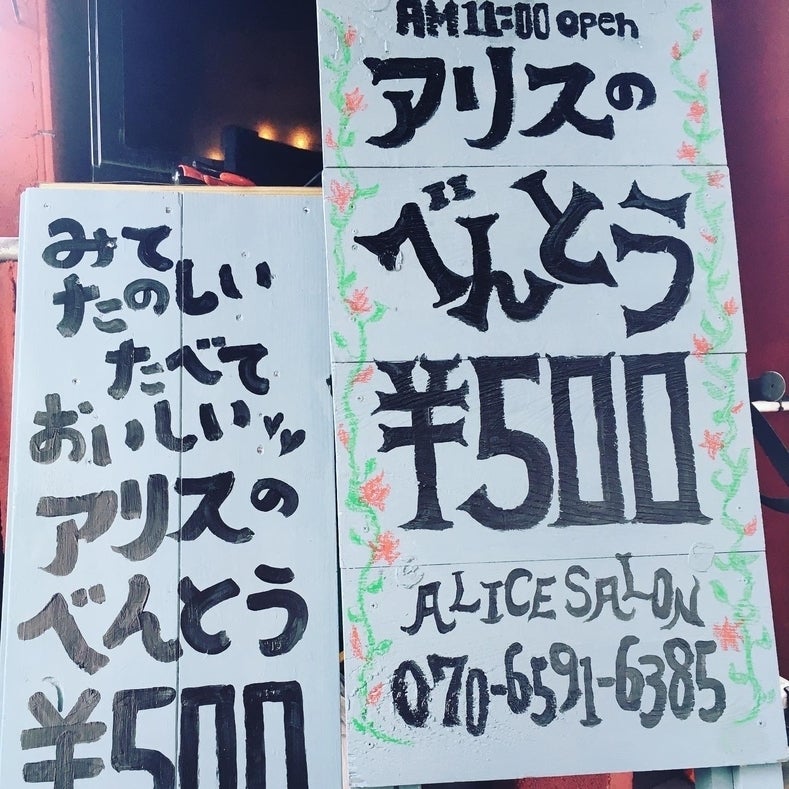 みて
たのしい
たべて
おいしい
アリスの
べんとう
¥500
AM 11:00 open
アリスの
べんとう
¥500
ALICE SALON
070-6591-6385